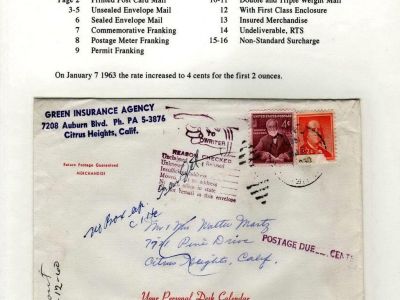 Page 2 Printed Post Card Mail
3-5 Unsealed Envelope Mail
6 Sealed Envelope Mail
7 Commemorative Franking
8 Postage Meter Franking
9 Permit Franking
10-11 Double and Triple Weight Mail
12 With First Class Enclosure
13 Insured Merchandise
14 Undeliverable, RTS
15-16 Non-Standard Surcharge
On January 7 1963 the rate increased to 4 cents for the first 2 ounces.
GREEN INSURANCE AGENCY
7208 Auburn Blvd. Ph. PA 5-3876
Citrus Heights, Calif.
Return Postage Guaranteed
MERCHANDISE
TO
WRITER
REASON CHECKED
UNITED STATES POSTAGE
4¢
no Box or
Mr & Mrs Walter Martz
Pine Drive
Citrus Heights, Calif.
POSTAGE DUE CENTS
12-60
Your Personal Desk Calendar